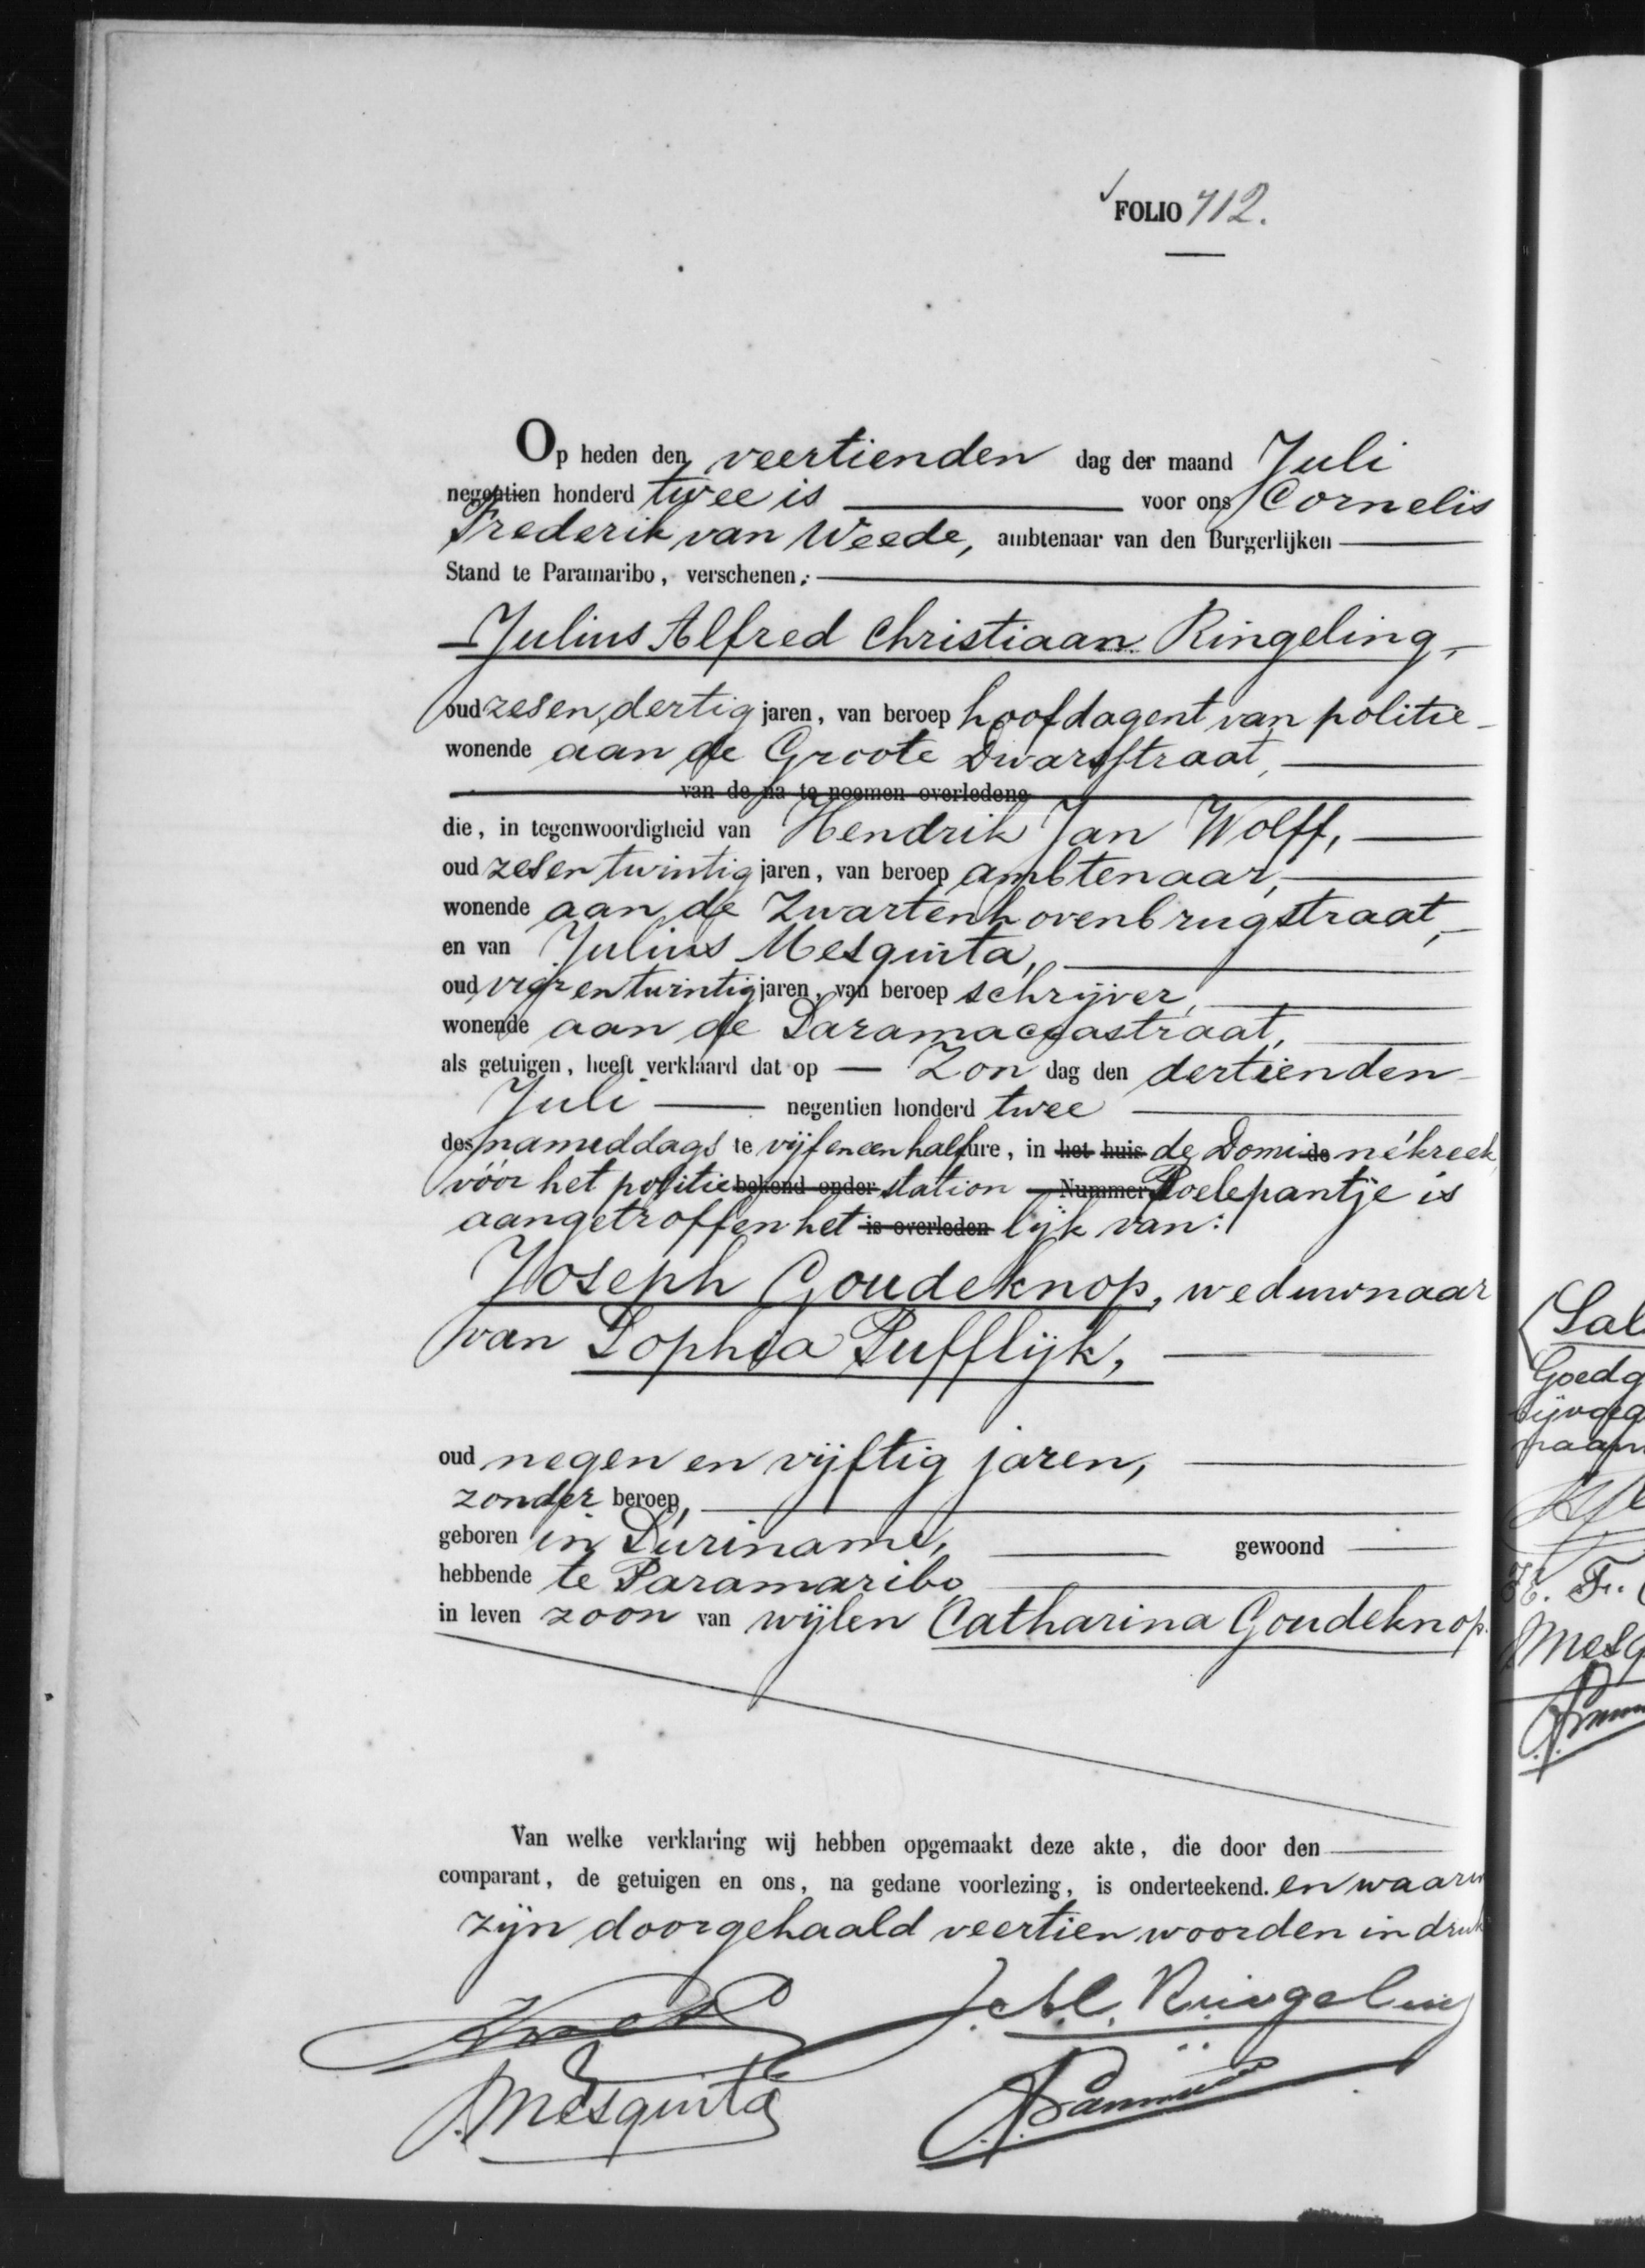 FOLIO 712.
Op heden den veertienden dag der maand Juli
negentien honderd twee is voor ons Cornelis
Frederik van Weede, ambtenaar van den Burgerlijken
Stand te Paramaribo, verschenen:
Julius Alfred Christiaan Ringeling,
oud zesendertig jaren, van beroep hoofdagent van politie
wonende aan de Groote Dwarsstraat,
van de na te noemen overledene
die, in tegenwoordigheid van Hendrik Jan Wolff,
oud zesentwintig jaren, van beroep ambtenaar,
wonende aan de Zwartenhovenbrugstraat,
en van Julius Mesquita,
oud vierentwintig jaren, van beroep schrijver,
wonende aan de Saramaccastraat,
als getuigen, heeft verklaard dat op Zon dag den dertienden
Juli negentien honderd twee
des namiddags te vijf en een half ure, in het huis de Domi de nékreek,
vóór het politie bekend onder station Nummer Poelepantje is
aangetroffen het is overleden lijk van:
Joseph Goudeknop, weduwnaar
van Sophia Pufflijk,
oud negen en vijftig jaren,
zonder beroep,
geboren in Suriname, gewoond
hebbende te Paramaribo
in leven zoon van wijlen Catharina Goudeknop.
Van welke verklaring wij hebben opgemaakt deze akte, die door den
comparant, de getuigen en ons, na gedane voorlezing, is onderteekend. en waarin
zijn doorgehaald veertien woorden in druk
J.A.C. Ringeling
J. Mesquita
Sal
Goedg
bijgeg
naam
H. Fr.
Mesq